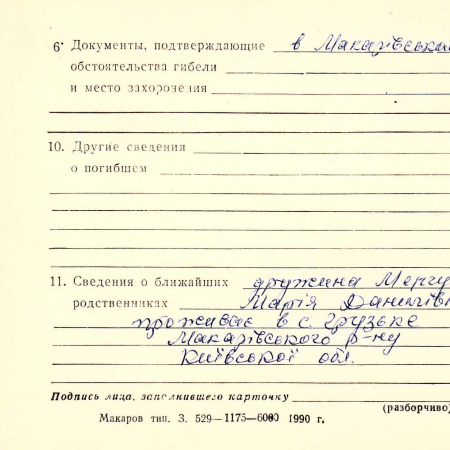 6. Документы, подтверждающие в Макарівсько
обстоятельства гибели
и место захоронения
10. Другие сведения
о погибшем
11. Сведения о ближайших дружина Мергу
родственниках Марія Данилів
проживає в с. Грузьке
Макарівського р-ну
Київської обл.
Подпись лица, заполнившего карточку
(разборчиво)
Макаров тип. З. 529—1175—6000 1990 г.